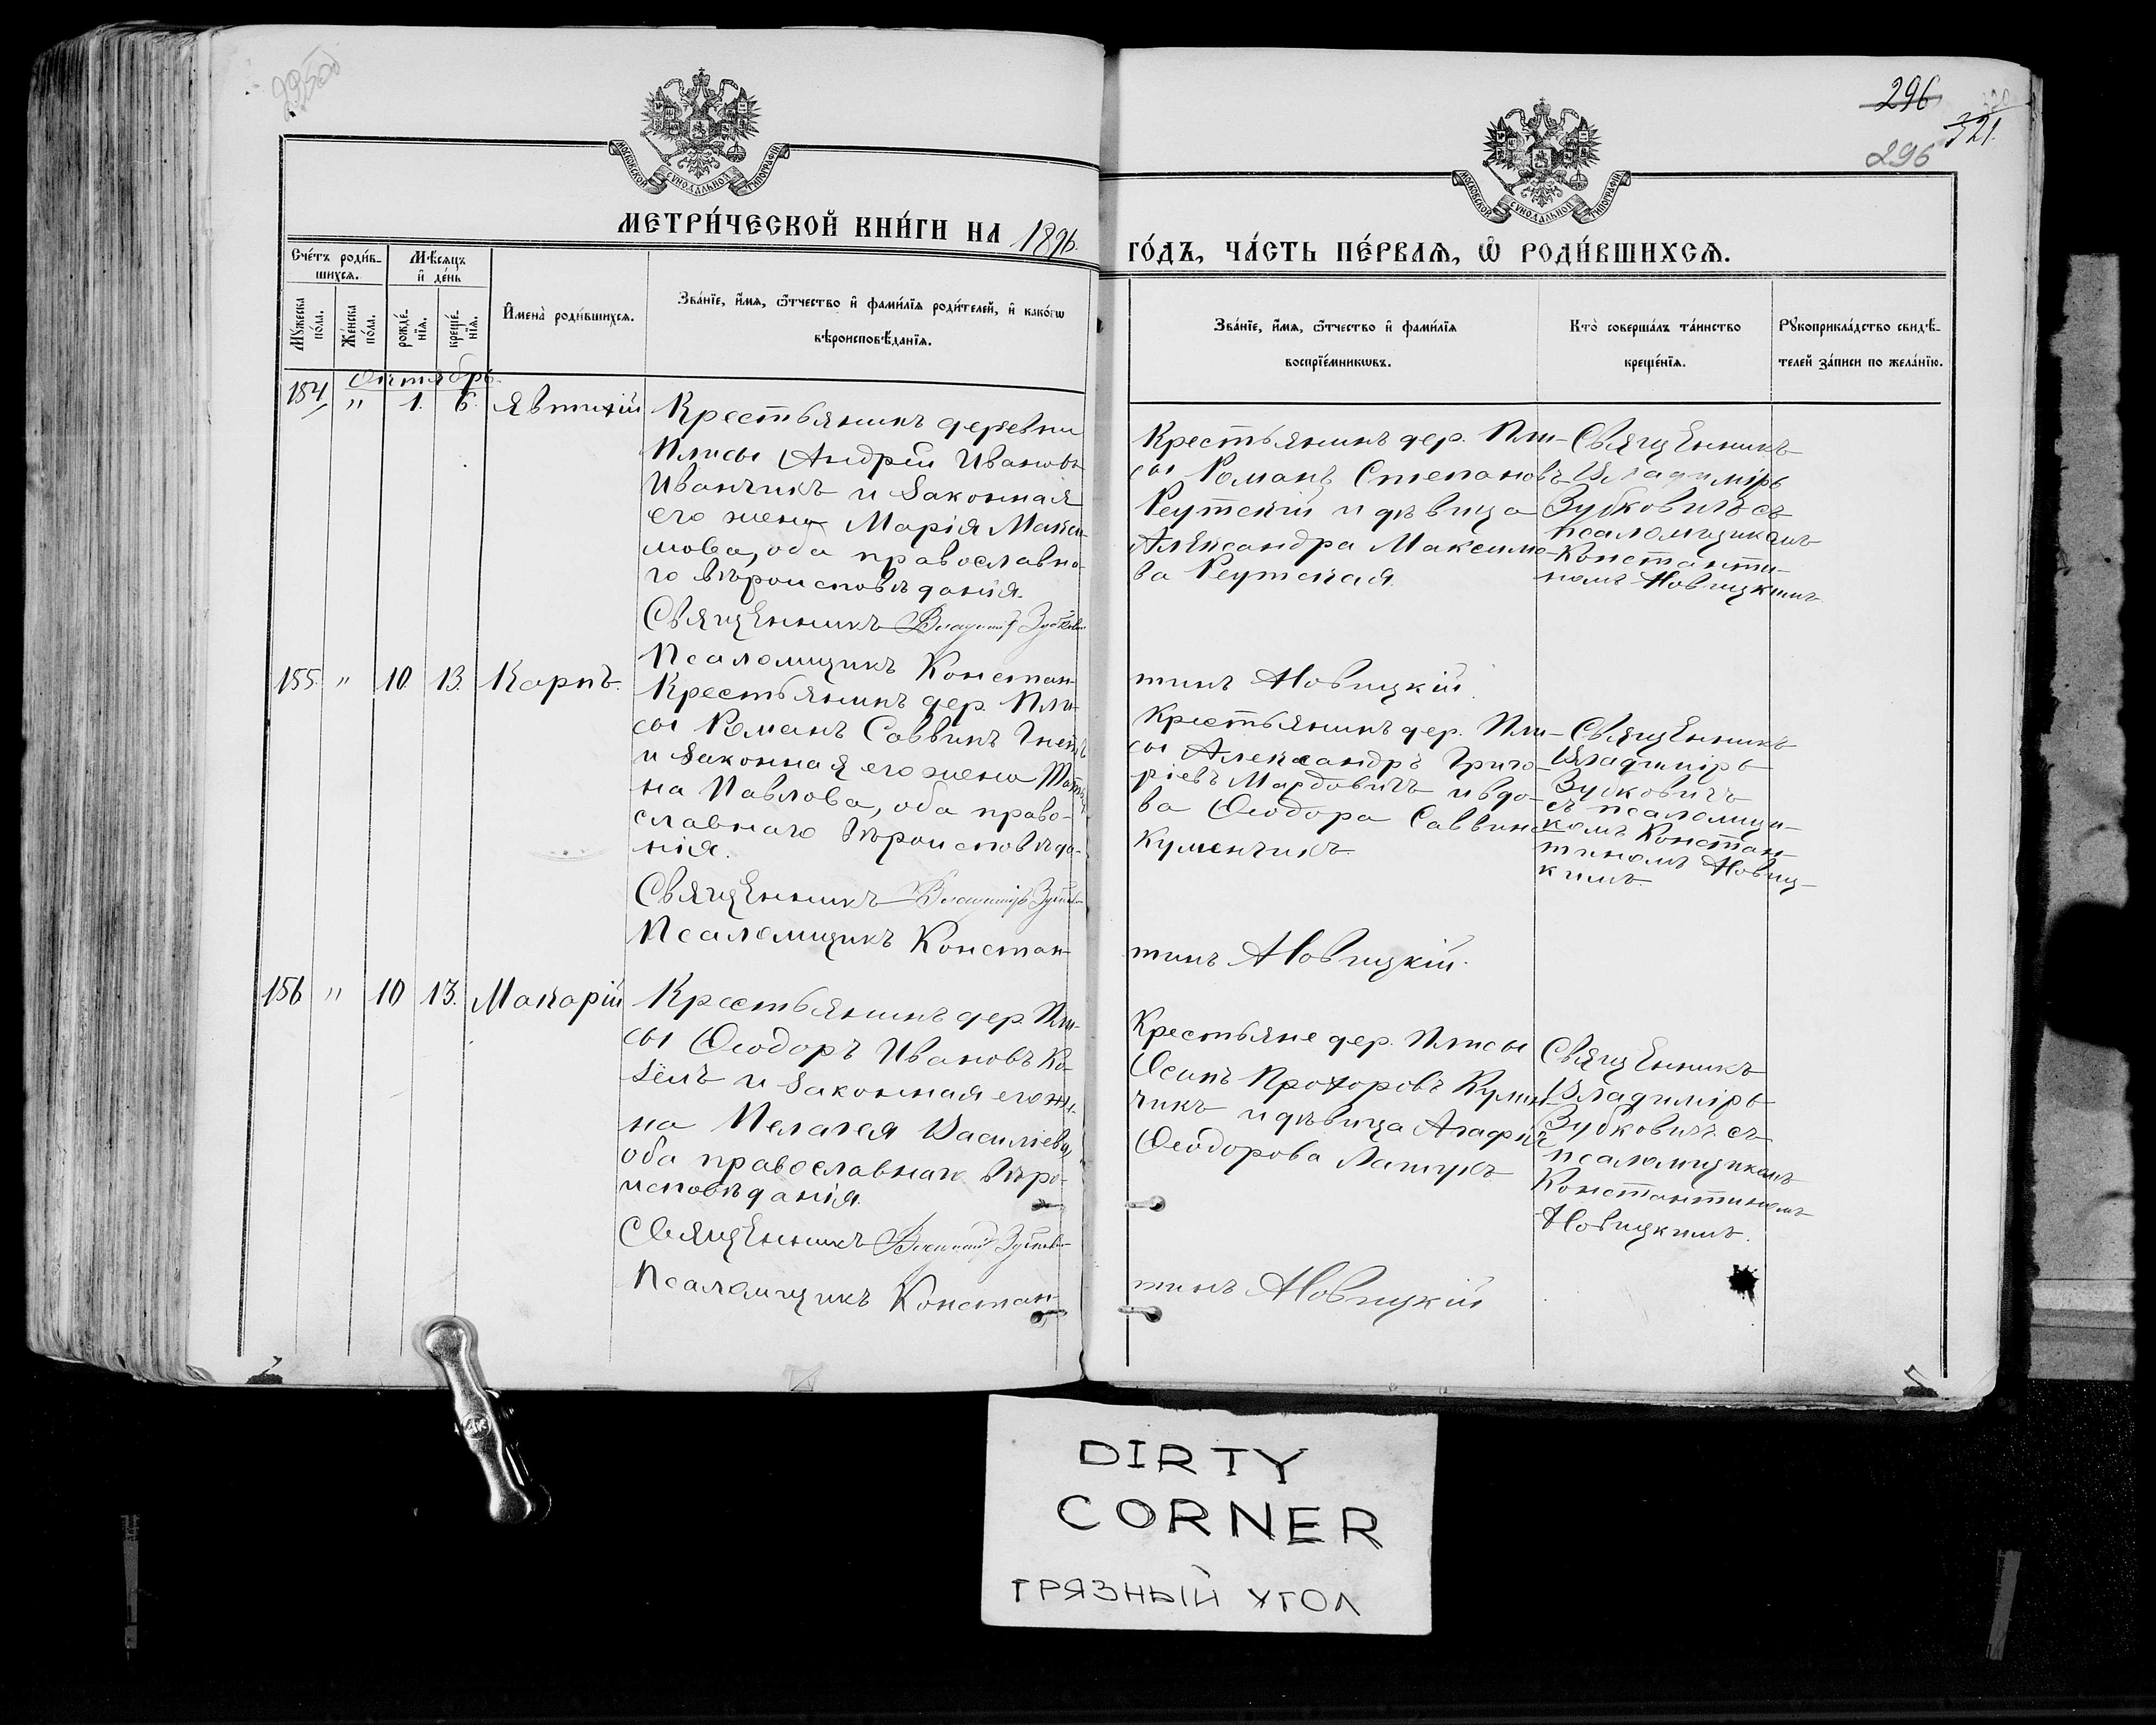 296
321.
296
МОСКОВСКОЙ СУНОДАЛЬНОЙ ТИПОГРАФІИ
МОСКОВСКОЙ СУНОДАЛЬНОЙ ТИПОГРАФІИ
МЕТРИ́ЧЕСКОЙ КНИ́ГИ НА 1896.
ГО́ДЪ, ЧА́СТЬ ПЕ́РВАѦ, Ѡ҆ РОДИ́ВШИХСѦ.
Сче́тъ роди́в-
шихсѧ.
Мѣ́сѧцъ
и҆ де́нь
Мꙋ́жеска
по́ла.
Же́нска
по́ла.
рожде́-
нїѧ.
креще́-
нїѧ.
И҆мена̀ роди́вшихсѧ.
Зва́нїе, и҆́мѧ, ѻ҆́тчество и҆ фами́лїѧ роди́телей, и҆ како́гѡ
вѣроисповѣ́данїѧ.
Зва́нїе, и҆́мѧ, ѻ҆́тчество и҆ фами́лїѧ
воспрїе́мникѡвъ.
Кто̀ соверша́лъ та́инство
креще́нїѧ.
Рꙋкоприкла́дство свидѣ́-
телей за́писи по жела́нїю.
Октябрь.
154 " 1. 6. Явтихій
Крестьянинъ деревни
Плисы Андрей Ивановъ
Иванчикъ и законная
его жена Марія Макси-
мова, оба православна-
го вѣроисповѣданія.
Священникъ Владиміръ Зубковичъ
Псаломщикъ Констан-
Крестьянинъ дер. Пли-
сы Романъ Степановъ
Реутскій и дѣвица
Александра Максимо-
ва Реутская.
Священникъ
Владиміръ
Зубковичъ съ
псаломщикомъ
Константи-
номъ Новицкимъ.
тинъ Новицкій.
155. " 10. 13. Карпъ.
Крестьянинъ дер. Пли-
сы Романъ Саввинъ
и законная его жена Татья-
на Павлова, оба право-
славнаго вѣроисповѣда-
нія.
Священникъ Владиміръ Зубковичъ
Псаломщикъ Констан-
Крестьянинъ дер. Пли-
сы Александръ Григо-
ріевъ Мардовичъ и вдо-
ва Ѳеодора Саввина
Куменчикъ.
Священникъ
Владиміръ
Зубковичъ
съ псаломщи-
комъ Констан-
тиномъ Новиц-
кимъ.
тинъ Новицкій.
156 " 10 13. Макарій
Крестьянинъ дер. Пли-
сы Ѳеодоръ Ивановъ Ко-
зёлъ и законная его же-
на Пелагея Василіева,
оба православнаго вѣро-
исповѣданія.
Священникъ Владиміръ Зубковичъ
Псаломщикъ Констан-
Крестьяне дер. Плисы
Осипъ Прохоровъ
чикъ и дѣвица Агафія
Ѳеодорова Лапуть
Священникъ
Владиміръ
Зубковичъ съ
псаломщикомъ
Константиномъ
Новицкимъ.
тинъ Новицкій
DIRTY
CORNER
ГРЯЗНЫЙ УГОЛ